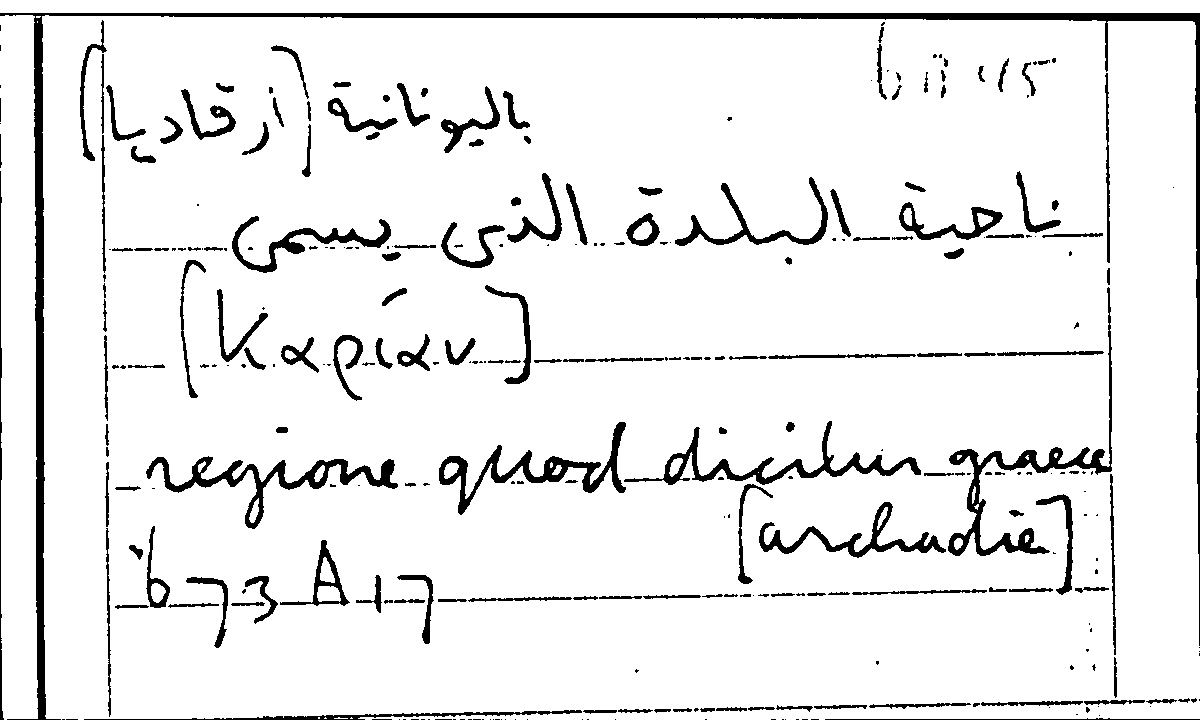 ناحية البلدة التى يسمى
باليونانية (ارقاديا)
[Καρίαν]
regione quod dicitur graece
[archadie]
673 A 17